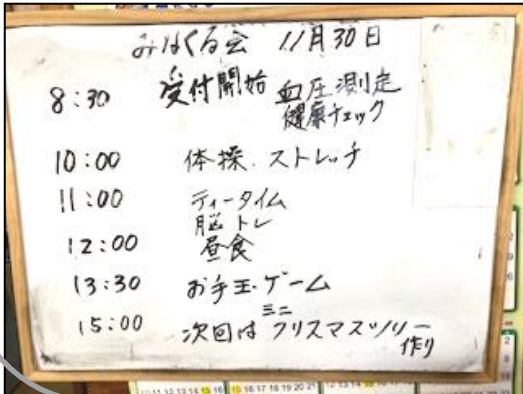 みはくる会 11月30日
8:30 受付開始 血圧測定
健康チェック
10:00 体操.ストレッチ
11:00 ティータイム
脳トレ
12:00 昼食
13:30 お手玉.ゲーム
15:00 次回は ミニ クリスマスツリー
作り